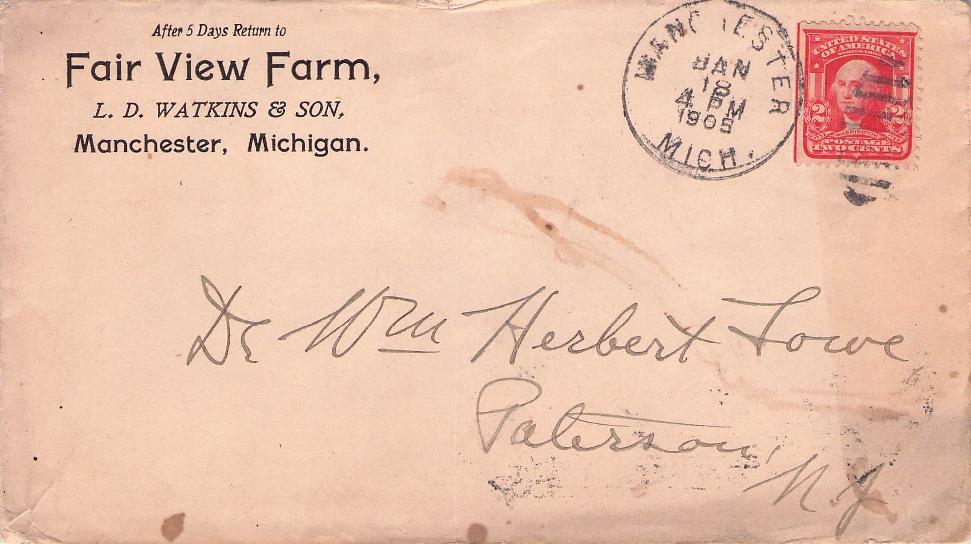 After 5 Days Return to
Fair View Farm,
L. D. WATKINS & SON,
Manchester, Michigan.
MANCHESTER
JAN
18
4 PM
1905
MICH.
UNITED STATES
OF AMERICA
2 2
WASHINGTON
POSTAGE
TWO CENTS
Dr Wm Herbert Lowe
Paterson,
N J